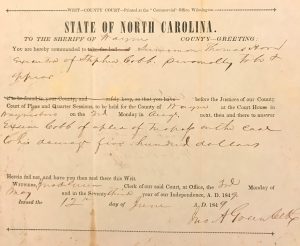 WRIT—COUNTY COURT—Printed at the "Commercial" Office, Wilmington.
STATE OF NORTH CAROLINA.
TO THE SHERIFF OF Wayne COUNTY—GREETING:
You are hereby commanded to take the body of Summon Thomas Hood
Executor of Stephen Cobb personally to be &
appear
if to be found in your County, and safely keep, so that you have before the Justices of our County
Court of Pleas and Quarter Sessions, to be held for the County of Wayne at the Court House in
Waynesboro on the 3rd Monday in Augt next, then and there to answer
Cobb of a plea of Trespass on the case
to his damage five hundred dollars
Herein fail not, and have you then and there this Writ.
WITNESS, Clerk of our said Court, at Office, the 3rd Monday of
May and in the Seventy third year of our Independence, A. D. 1849
Issued the 12th day of June A. D. 1849
Jno. A. Green Clk